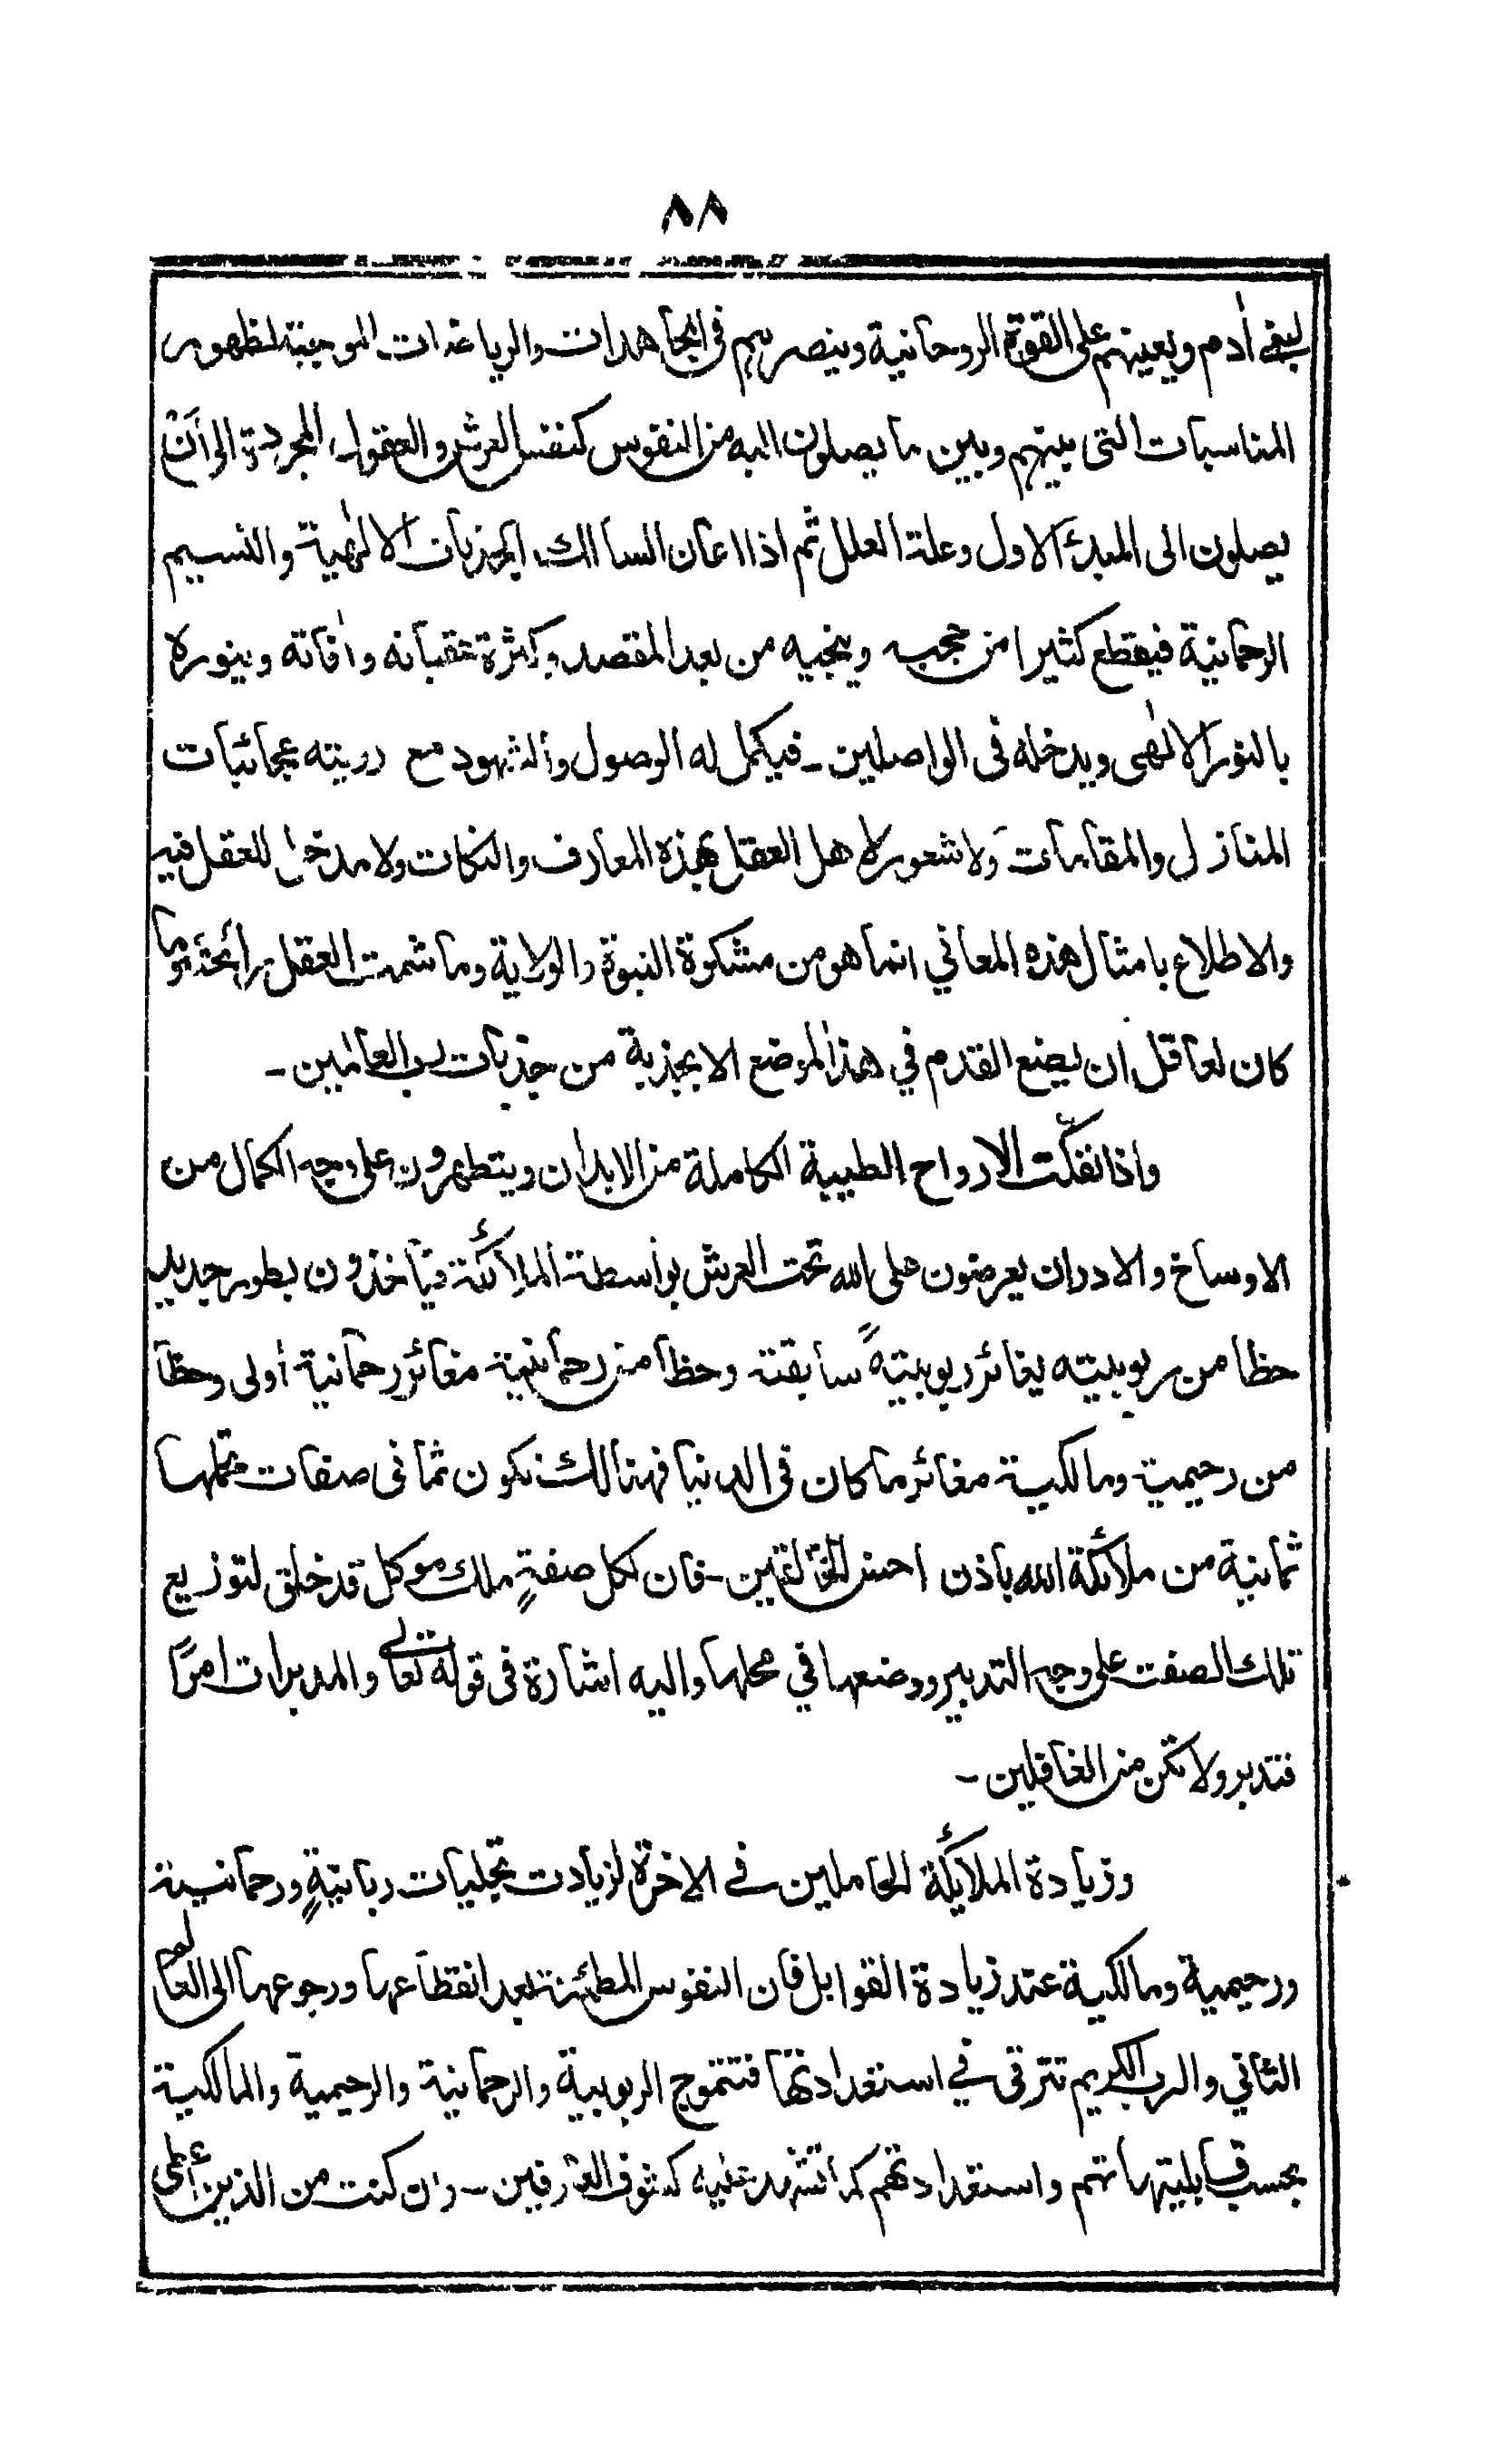 ٨٨
لبنى اٰدم ويعينهم على القوة الروحانية وينصرهم فى المجاهدات والرياضات الموجبة لظهور
المناسبات التى بينهم وبين ما يصلون اليه من النفوس كنفس العرش والعقول المجردة الى اَنْ
يصلون الى المبدء الاول وعلة العلل ثم اذا اعان السالك الجذبات الالٰهية والنسيم
الرحمانية فيقطع كثيرا من حجبه وينجيه من بعد المقصد وكثرة عقباته واٰفاته وينوره
بالنور الالٰهى ويدخله فى الواصلين ـ فيكمل له الوصول والشهود مع رريته عجائبات
المنازل والمقامات وَلا شعور لاهل العقل بهذه المعارف والنكات ولا مدخل للعقل فيه
والاطلاع بامثال هذه المعاني انما هو من مشكوة النبوة والولاية وما شمت العقل رائحته وما
كان لعاقل ان يضع القدم في هذا الموضع الا بجذبة من جذبات رب العالمين ـ
واذا انفكّت الارواح الطيبية الكاملة من الابدان ويتطهرون على وجه الكمال من
الاوساخ والادران يعرضون على الله تحت العرش بواسطة الملائكة فيأخذون بطور جديد
حظا من ربوبيته يغائر ربوبيتهً سابقته وحظا من رحمانيه مغائر رحمانية اُولى وحظا
من رحيمية ومالكية مغائر ما كان فى الدنيا فهنالك تكون ثمانى صفات تحملها
ثمانية من ملائكة الله باذن احسن الخالقين ـ فان لكل صفةٍ ملك موكل قد خلق لتوزيع
تلك الصفت على وجه التدبير ووضعها في محلها واليه اشارة فى قوله تعالى والمدبرات امرًا
فتدبر ولا تكن من الغافلين ـ
وزيادة الملائكة الحاملين فے الاخرة لزيادت تجليات ربانيةٍ ورحمانية
ورحيمية ومالكية عند زيادة القوابل فان النفوس المطمئنة بعد انقطاعها ورجوعها الى العالم
الثاني والرب الكريم تترقى فے استعداداتها فتتموج الربوبية والرحمانية والرحيمية والمالكية
بحسب قابلياتهم واستعداداتهم كما تشهد عليه كشوف العارفين ـ وان كنت من الذين اُعطى